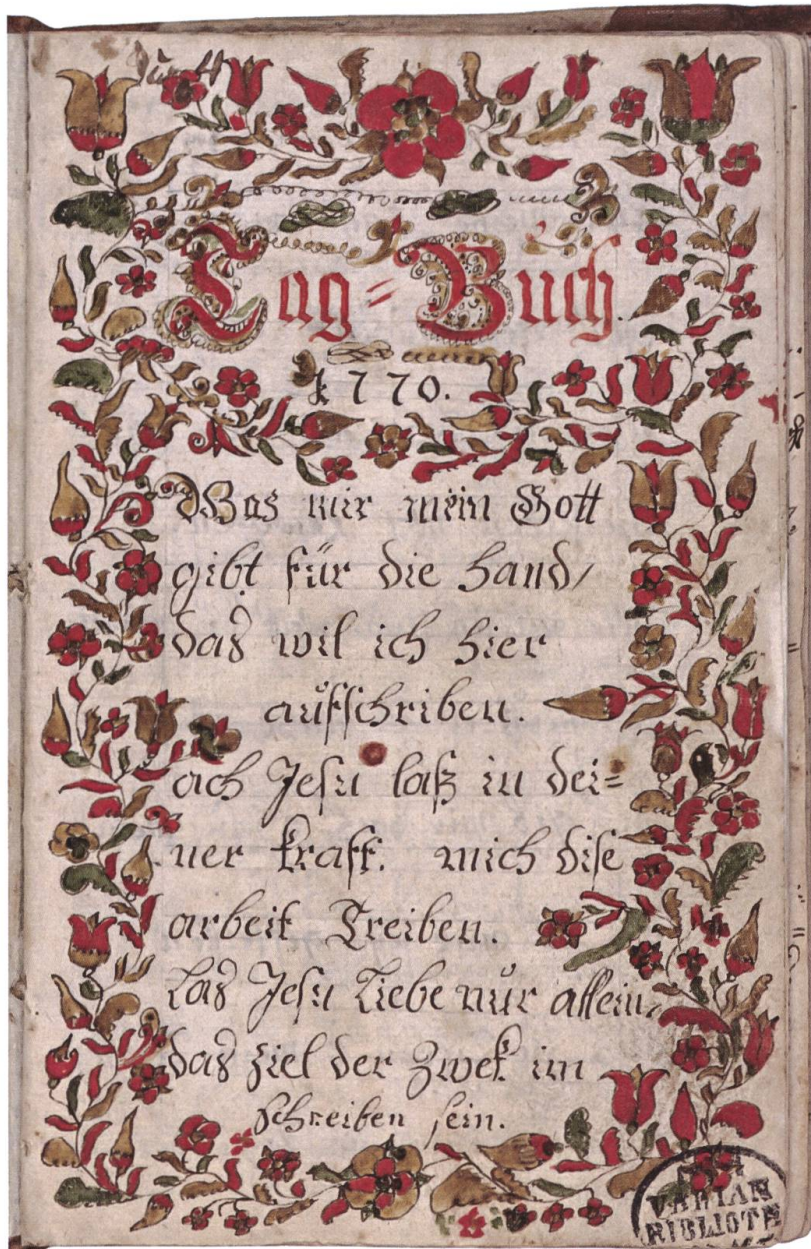 Tag=Bůch.
1770.
Was mir mein Gott
gibt für die hand/
das wil ich hier
aůfschriben.
ach Jesu laß in dei=
ner kraft. mich dise
arbeit Treiben.
Las Jesu Liebe nůr allein,
das ziel der Zwek im
schreiben sein.
VADIAN
BIBLIOTH